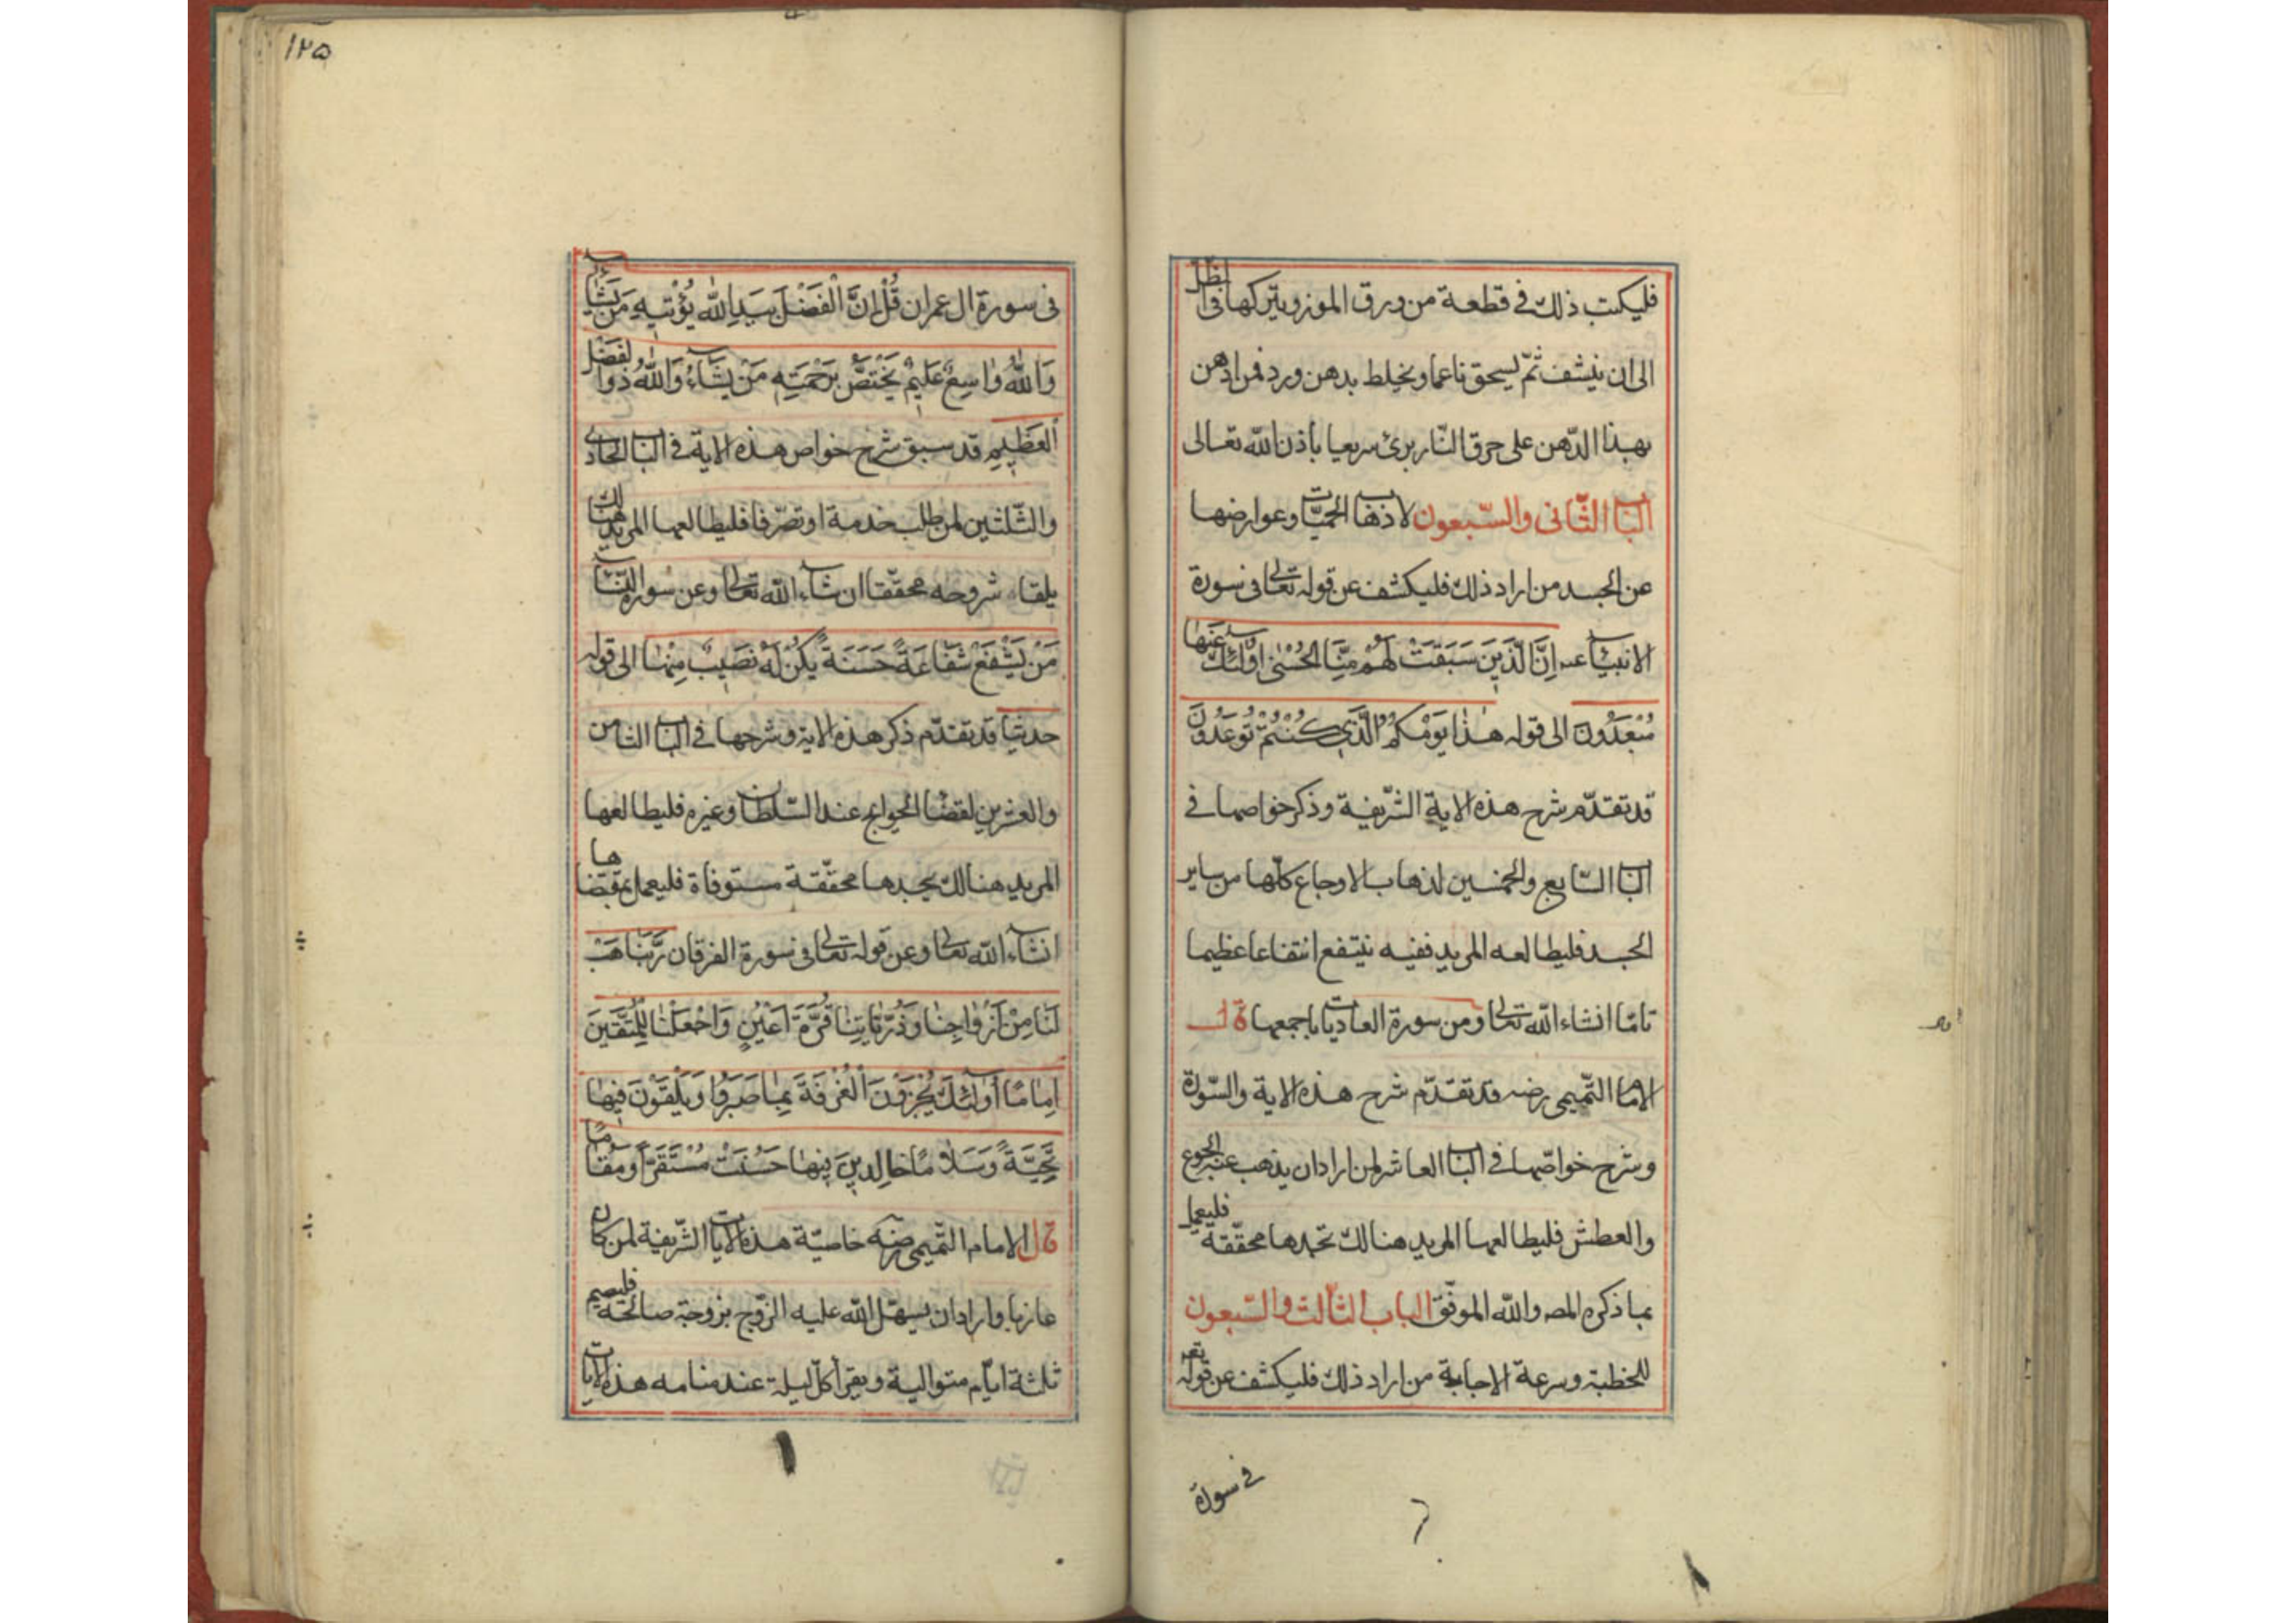 فليكتب ذلك في قطعة من ورق الموز ويتركها في الظل
الى ان ينشف ثمّ يسحق ناعما ويخلط بدهن ورد فمن ادهن
بهذا الدّهن على حرق النّار برئ سريعا بأذن الله تعالى
الباب الثّانى والسّبعون لاذهاب الحميّات وعوارضها
عن الجسد من اراد ذلك فليكشف عن قوله تعالى فى سورة
الانبياء عه اِنَّ الَّذِينَ سَبَقَتْ لَهُمْ مِنَّا الحُسْنى اوُلٰئِكَ عَنهَا
مُبْعَدُونَ الى قوله هٰذا يَوْمُكُمُ الَّذِي كُنْتُمْ تُوعَدُونَ
قد تقدّم شرح هذه الاية الشّريفة وذكر خواصها فى
الباب السّابع والخمسين لذهاب الاوجاع كلّها من ساير
الجسد فليطالعه المريد ففيه ينتفع انتفاعا عظيما
تامّا انشاء الله تعالى ومن سورة العاديات باجمعها قال
الامام التّميمى رضه قد تقدّم شرح هذه الاية والسّورة
وشرح خواصّها فى الباب العاشر لمن اراد ان يذهب عنه الجوع
والعطش فليطالعها المريد هنالك تجدها محقّقة فليعمل
بما ذكره المص والله الموفّق الباب الثّالث والسّبعون
للخطبة وسرعة الاجابة من اراد ذلك فليكشف عن قوله تعه
فى سورة
١٢٥
فى سورة ال عمران قُلْ اِنَّ الْفَضْلَ بِيَدِ اللهِ يُؤْتِيهِ مَنْ يَشَاءُ
وَاللهُ وٰاسِعٌ عَلِيمٌ يَخْتَصُّ بِرَحْمَتِهِ مَنْ يَشَاءُ وَاللهُ ذُو الفَضْلِ
العَظِيمِ قد سبق شرح خواص هذه الاية فى الباب الحادى
والثّلثين لمن طلب خدمة او تصرّفا فليطالعها المريد هنالك
يلقاء شروحه محقّقا ان شاء الله تعالى وعن سورة النّساء
مَنْ يَشْفَعْ شَفَاعَةً حَسَنَةً يَكُنْ لَهُ نَصِيبٌ مِنْهٰا الى قوله
حديثا قد تقدّم ذكر هذه الاية وشرحها فى الباب الثامن
والعشرين لقضاء الحوايج عند السّلطان وغيره فليطالعها
المريد هنالك يجدها محقّقة مستوفاة فليعمل بمقتضاها
انشاء الله تعالى وعن قوله تعالى فى سورة الفرقان رَبَّنَا هَبْ
لَنَا مِنْ اَزْوٰاجِنٰا وَذُرِّيَّاتِنٰا قُرَّةَ اَعْيُنٍ وَاجْعَلْنٰا لِلْمُتَّقِينَ
اِمٰامًا أُولٰئِكَ يُجْزَوْنَ الْغُرْفَةَ بِمٰا صَبَرُوا وَيُلَقَّوْنَ فِيهٰا
تَحِيَّةً وَسَلٰامًا خٰالِدِينَ فِيهٰا حَسُنَتْ مُسْتَقَرًّا وَمُقٰامًا
قال الامام التّميمى رضه خاصيّة هذه الايات الشّريفة لمن كان
عازبا واراد ان يسهّل الله عليه الزّوج بزوجة صالحة فليصم
ثلثة ايّام متوالية ويقرأ كلّ ليلة عند منامه هذه الايات